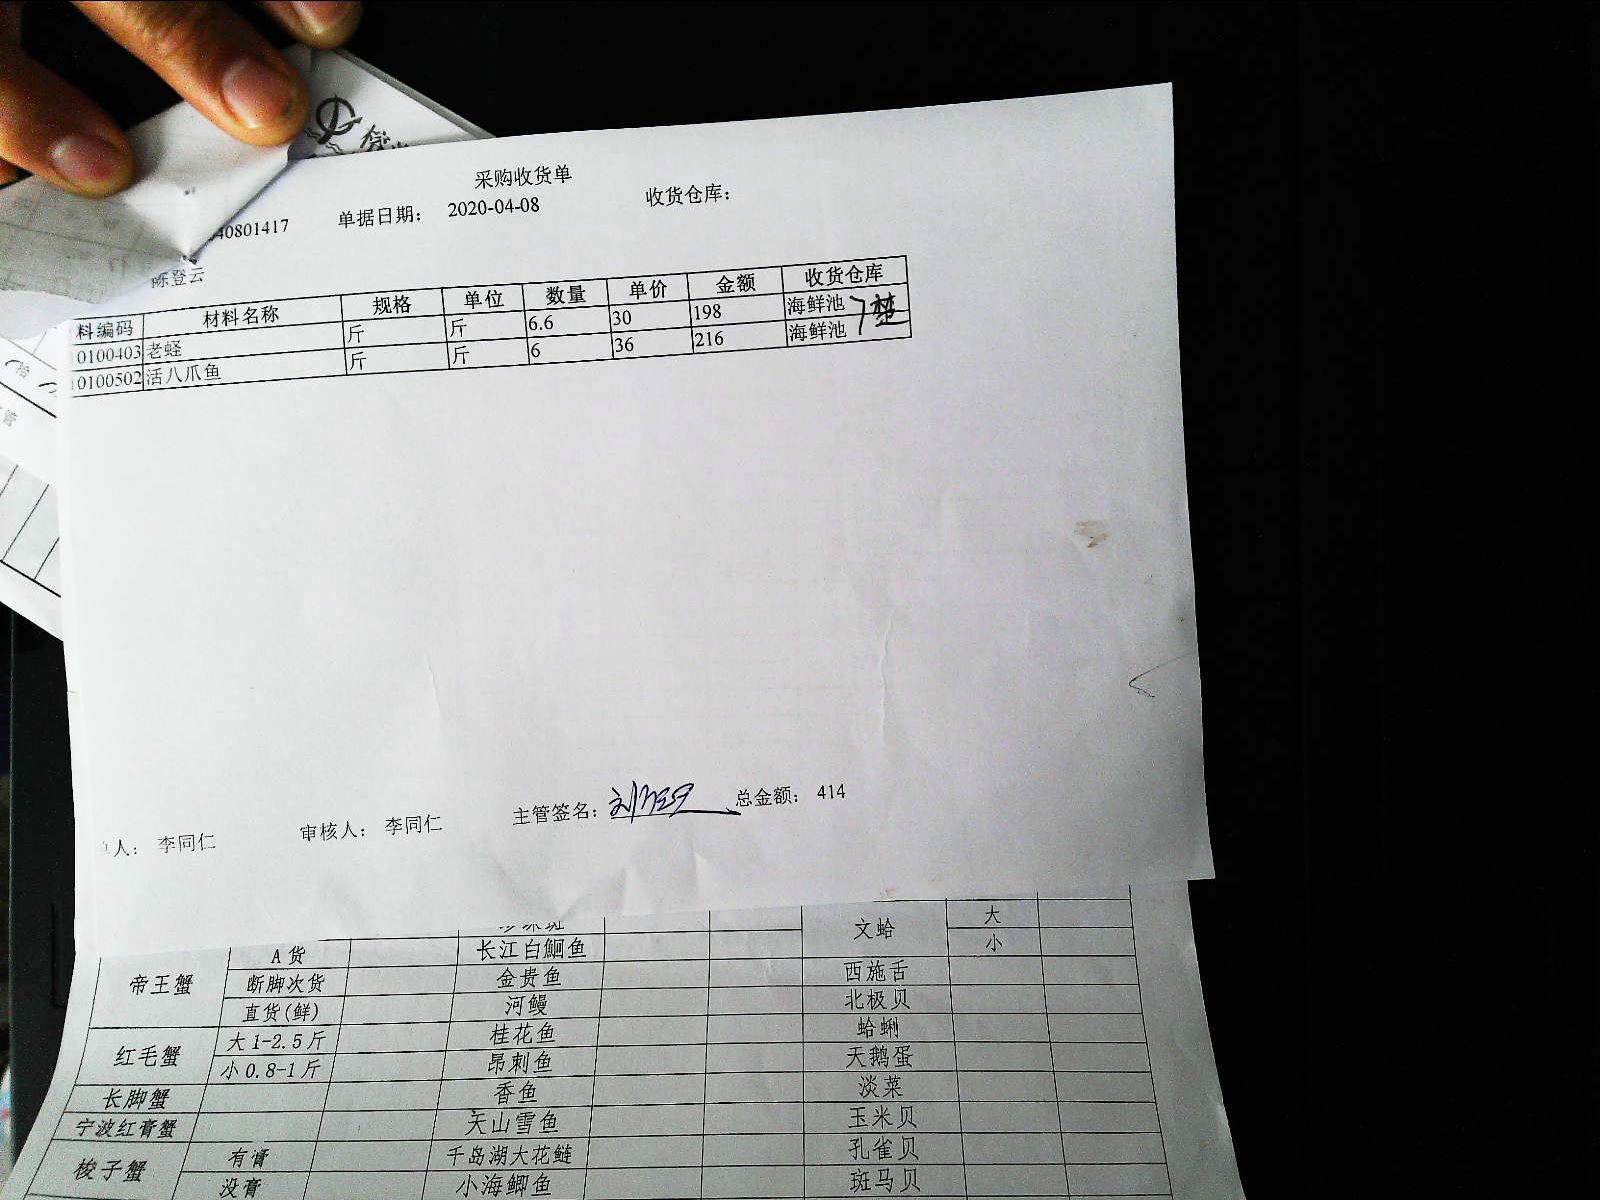 采购收货单
40801417 单据日期： 2020-04-08 收货仓库：
陈登云
料编码 材料名称 规格 单位 数量 单价 金额 收货仓库
0100403 老蛏 斤 斤 6.6 30 198 海鲜池
0100502 活八爪鱼 斤 斤 6 36 216 海鲜池
7楚
人： 李同仁 审核人： 李同仁 主管签名： 总金额： 414
文蛤 大
A货 长江白鮰鱼 小
帝王蟹 断脚次货 金贵鱼 西施舌
直货(鲜) 河鳗 北极贝
红毛蟹 大1-2.5斤 桂花鱼 蛤蜊
小0.8-1斤 昂刺鱼 天鹅蛋
长脚蟹 香鱼 淡菜
宁波红膏蟹 天山雪鱼 玉米贝
梭子蟹 有膏 千岛湖大花鲢 孔雀贝
没膏 小海鲫鱼 斑马贝